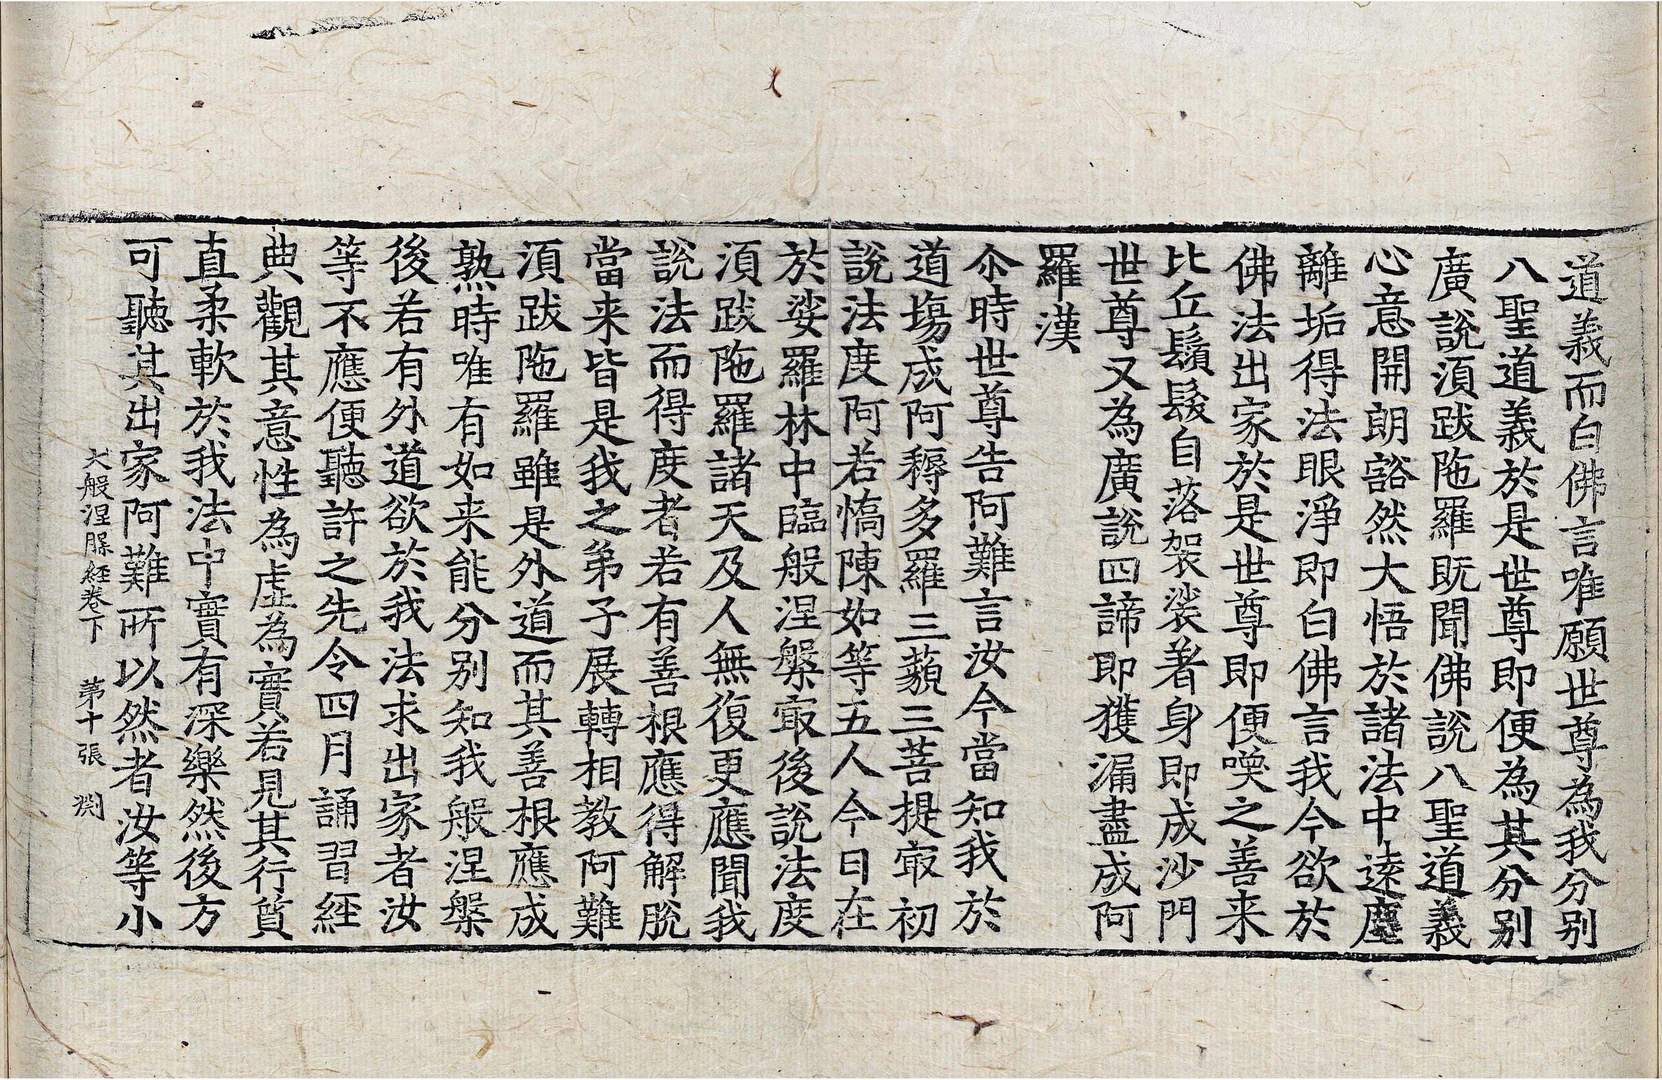 道義而白佛言唯願世尊為我分别
八聖道義於是世尊即便為其分别
廣說湏跋陁羅既聞佛說八聖道義
心意開朗豁然大悟於諸法中遠塵
離垢得法眼淨即白佛言我今欲於
佛法出家於是世尊即便喚之善来
比丘鬚髮自落袈裟著身即成沙門
世尊又為廣說四諦即獲漏盡成阿
羅漢
尒時世尊告阿難言汝今當知我於
道場成阿耨多羅三藐三菩提㝡初
說法度阿若憍陳如等五人今日在
於娑羅林中臨般涅槃㝡後說法度
湏跋陁羅諸天及人無復更應聞我
說法而得度者若有善根應得解脫
當来皆是我之弟子展轉相教阿難
湏跋陁羅雖是外道而其善根應成
熟時唯有如来能分别知我般涅槃
後若有外道欲於我法求出家者汝
等不應便聽許之先令四月誦習經
典觀其意性為虛為實若見其行質
直柔軟於我法中實有深樂然後方
可聽其出家阿難所以然者汝等小
大般涅槃経卷下 苐十張 渕